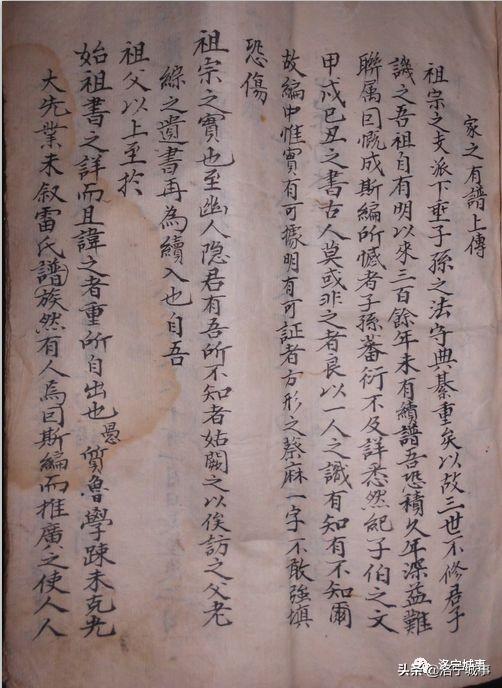 家之有譜上傳
祖宗之支派下垂子孫之法守典綦重矣以故三世不修君子
譏之吾祖自有明以來三百餘年未有續譜吾恐積久年深益難
聯属因慨成斯編所憾者子孫蕃衍不及詳悉然紀子伯之文
甲戌己丑之書古人莫或非之者良以一人之識有知有不知爾
故編中惟實有可據明有可証者方形之蔡麻一字不敢強填
恐傷
祖宗之實也至幽人隐君有吾所不知者姑闕之以俟訪之父老
綜之遺書再為續入也自吾
祖父以上至於
始祖書之詳而且諱之者重所自出也愚質魯學疎未克光
大先業未叙雷氏譜族然有人焉因斯編而推廣之使人人
头条@洛宁城事
洛宁城事